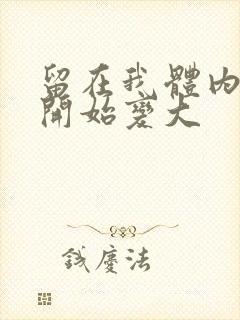 留在我體內
開始變大
錢慶法